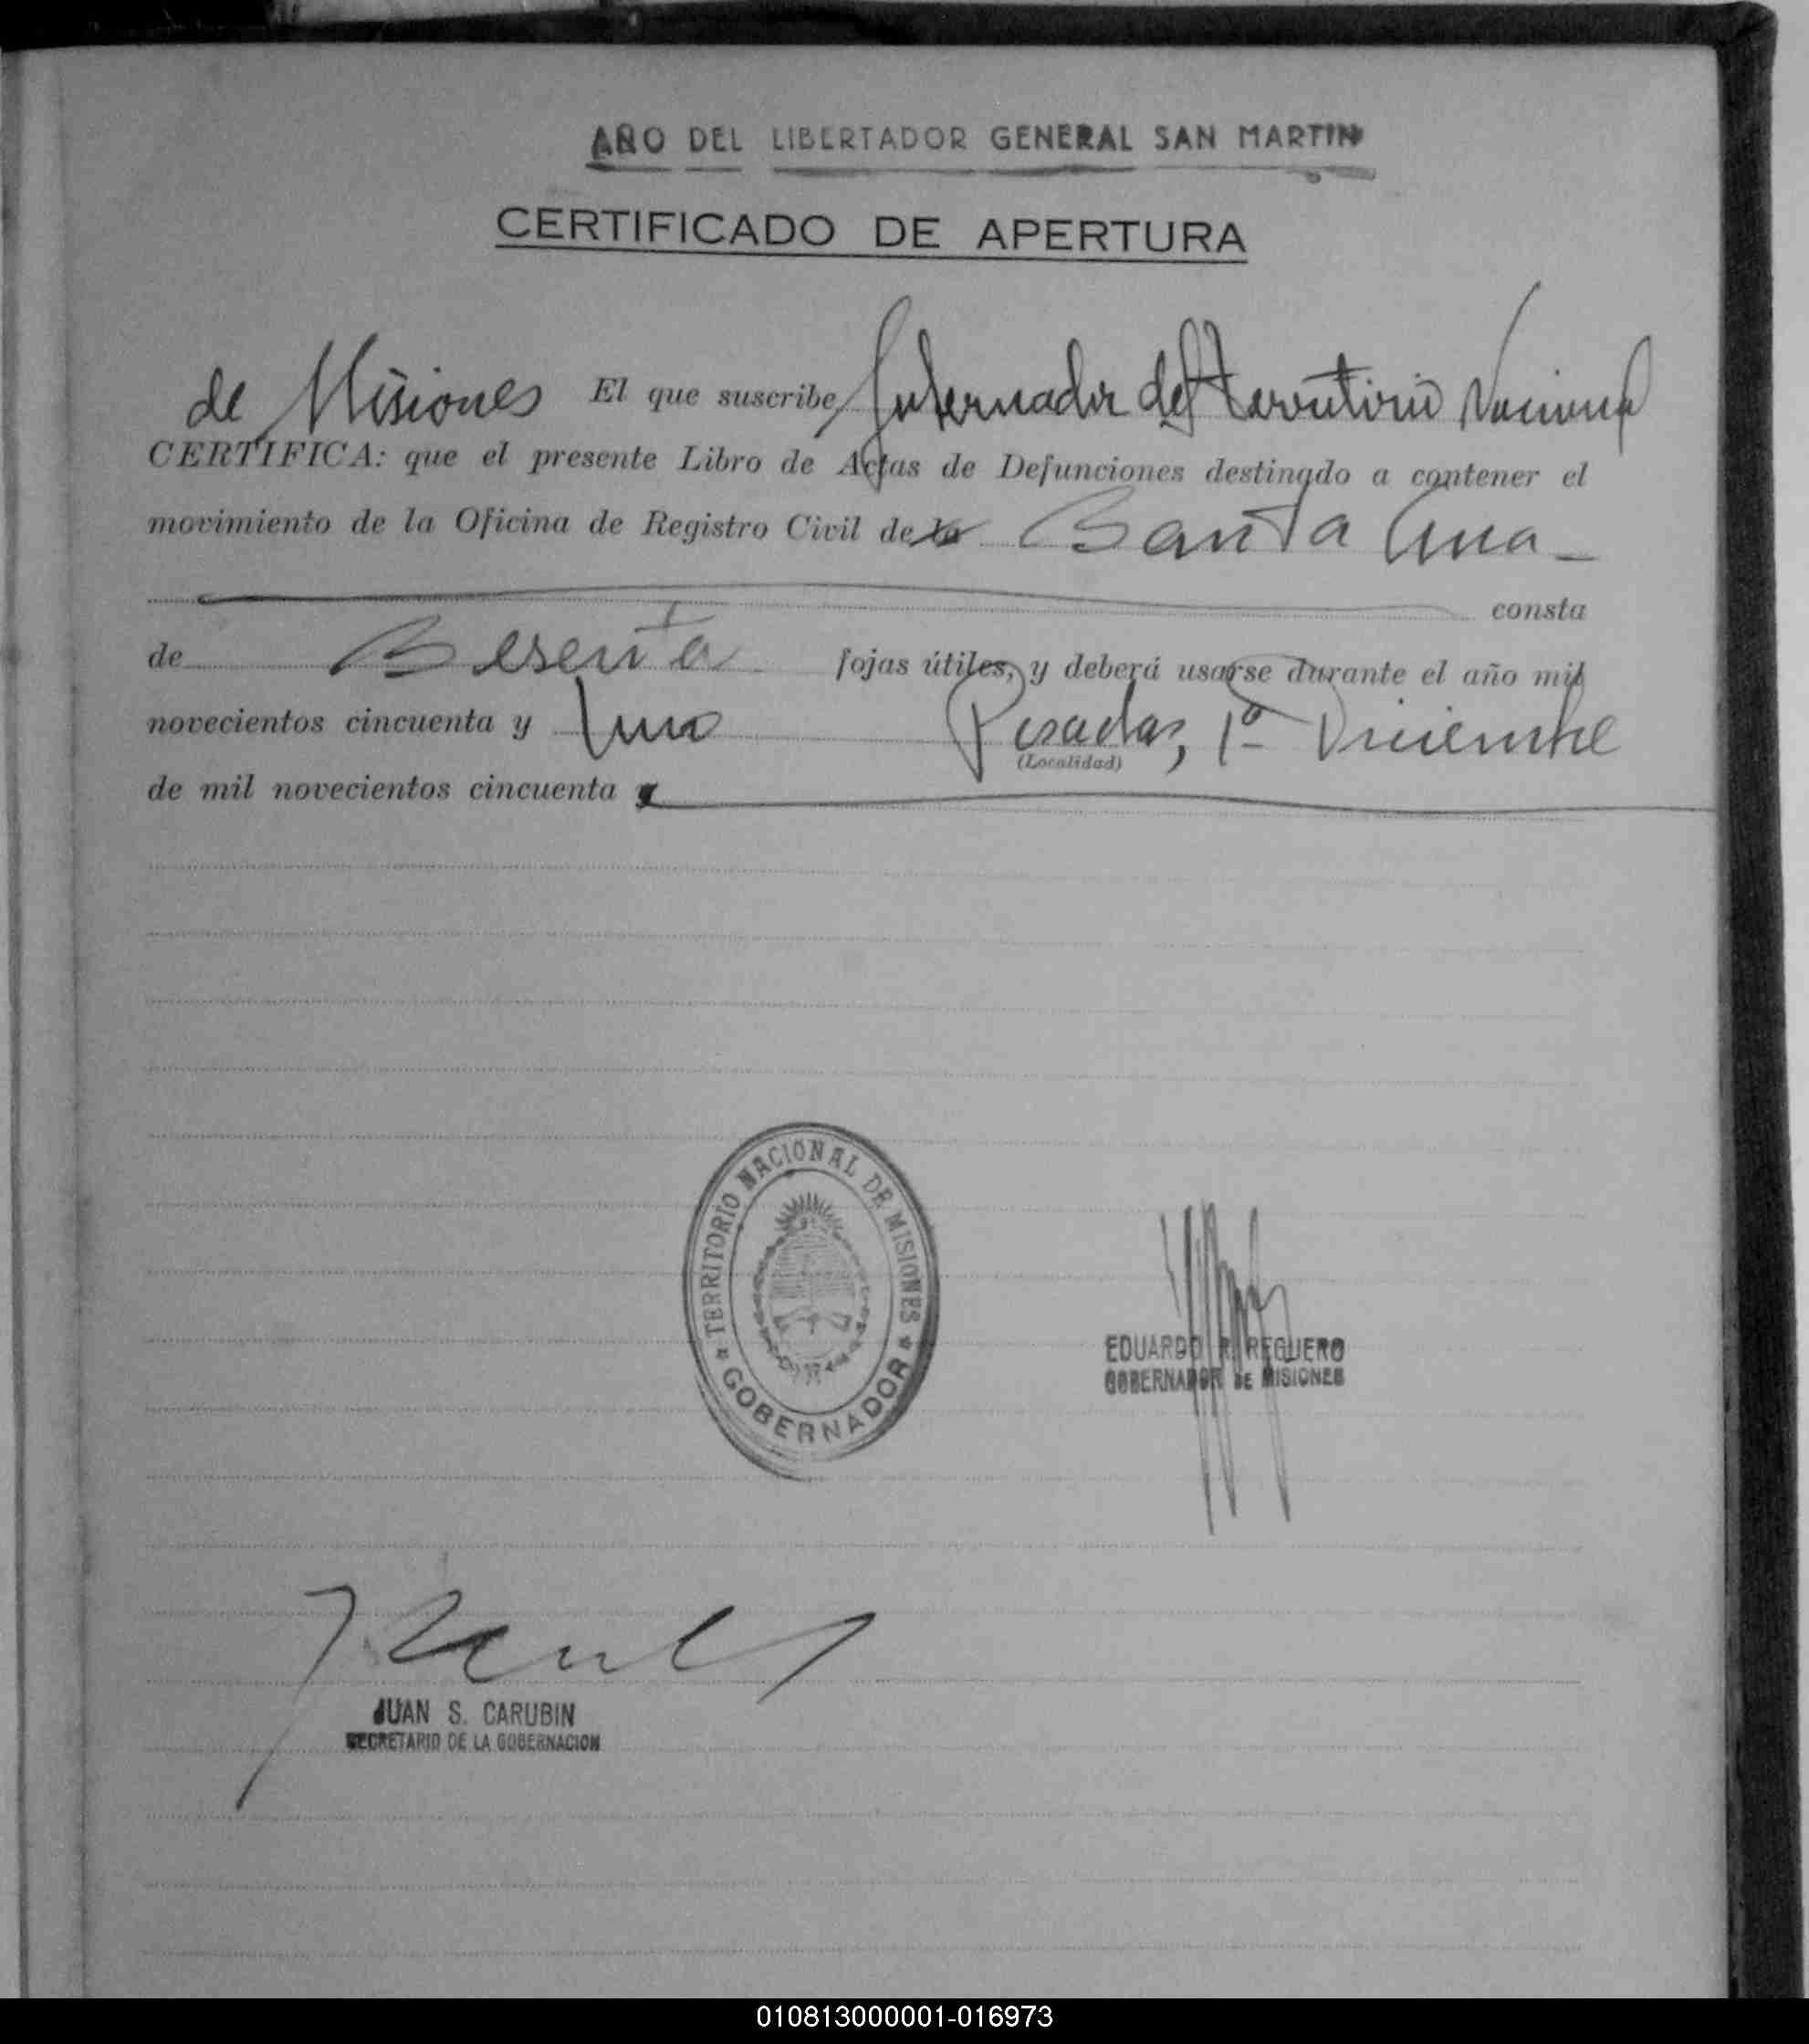 AÑO DEL LIBERTADOR GENERAL SAN MARTIN
CERTIFICADO DE APERTURA
de Misiones El que suscribe, Gobernador del territorio Nacional
CERTIFICA: que el presente Libro de Actas de Defunciones destinado a contener el
movimiento de la Oficina de Registro Civil de la Santa Ana
consta
de Sesenta fojas útiles, y deberá usarse durante el año mil
novecientos cincuenta y uno Posadas, 1º Diciembre
(Localidad)
de mil novecientos cincuenta y
* TERRITORIO NACIONAL DE MISIONES *
GOBERNADOR
EDUARDO R. REGUERO
GOBERNADOR DE MISIONES
JUAN S. CARUBIN
SECRETARIO DE LA GOBERNACION
010813000001-016973